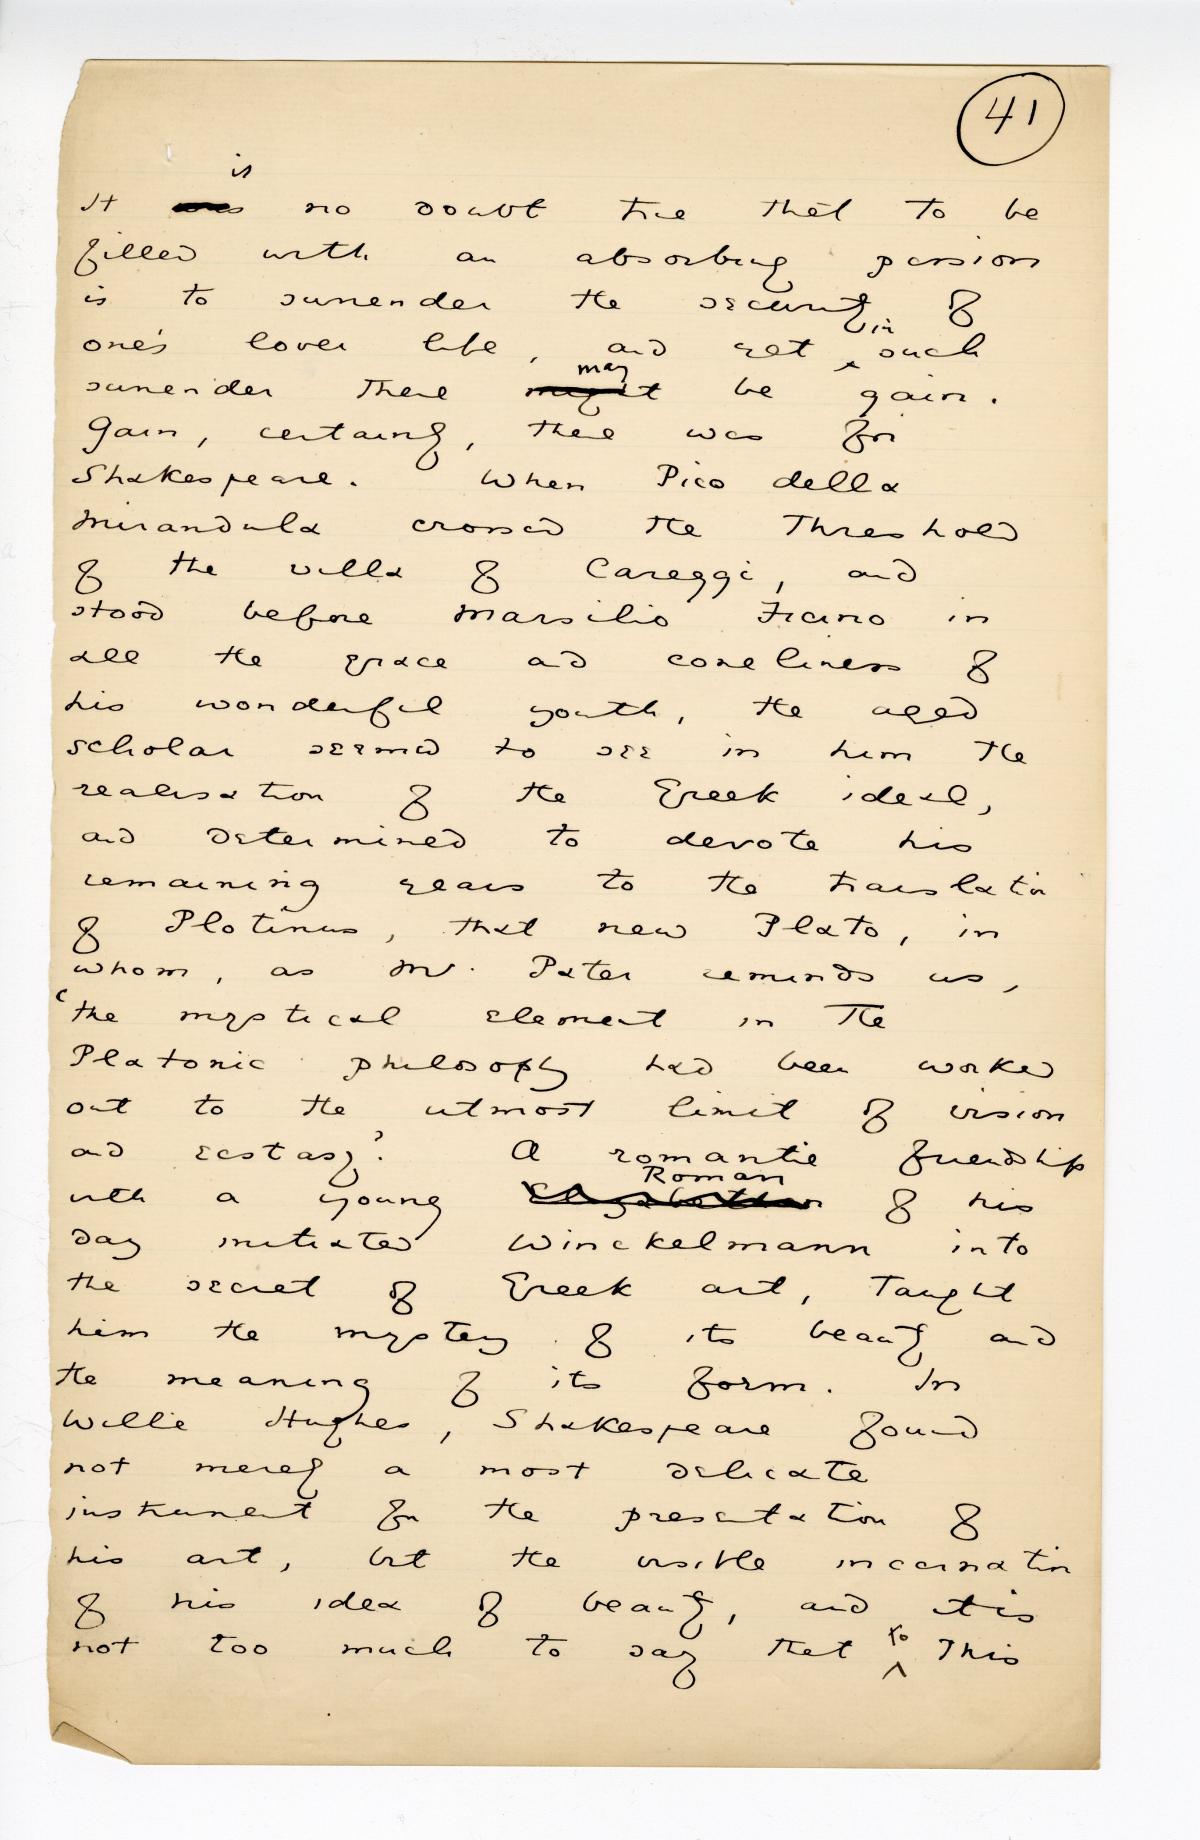 41
is
It was no doubt true that to be
filled with an absorbing passion
is to surrender the security of
one's lower life, and yet in such
may
surrender there might be gain.
Gain, certainly, there was for
Shakespeare. When Pico della
Mirandula crossed the threshold
of the villa of Careggi, and
stood before Marsilio Ficino in
all the grace and comeliness of
his wonderful youth, the aged
scholar seemed to see in him the
realisation of the Greek ideal,
and determined to devote his
remaining years to the translation
of Plotinus, that new Plato, in
whom, as Mr. Pater reminds us,
'the mystical element in the
Platonic philosophy had been worked
out to the utmost limit of vision
and ecstasy.' A romantic friendship
Roman
with a young Elizabethan of his
day initiated Winckelmann into
the secret of Greek art, taught
him the mystery of its beauty and
the meaning of its form. In
Willie Hughes, Shakespeare found
not merely a most delicate
instrument for the presentation of
his art, but the visible incarnation
of his idea of beauty, and it is
not too much to say that to this